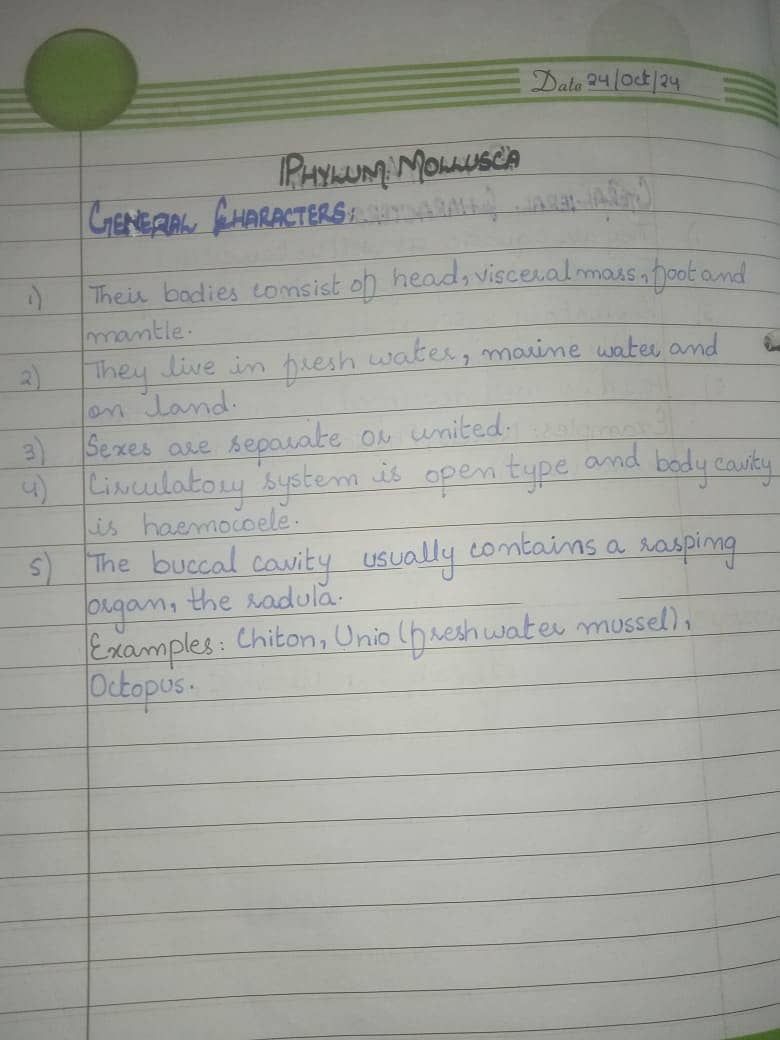 Date 24/Oct/24
PHYLUM: MOLLUSCA
GENERAL CHARACTERS:
1) Their bodies consist of head, visceral mass, foot and
mantle.
2) They live in fresh water, marine water and
on land.
3) Sexes are separate or united.
4) Circulatory system is open type and body cavity
is haemocoele.
5) The buccal cavity usually contains a rasping
organ, the radula.
Examples: Chiton, Unio (freshwater mussel),
Octopus.